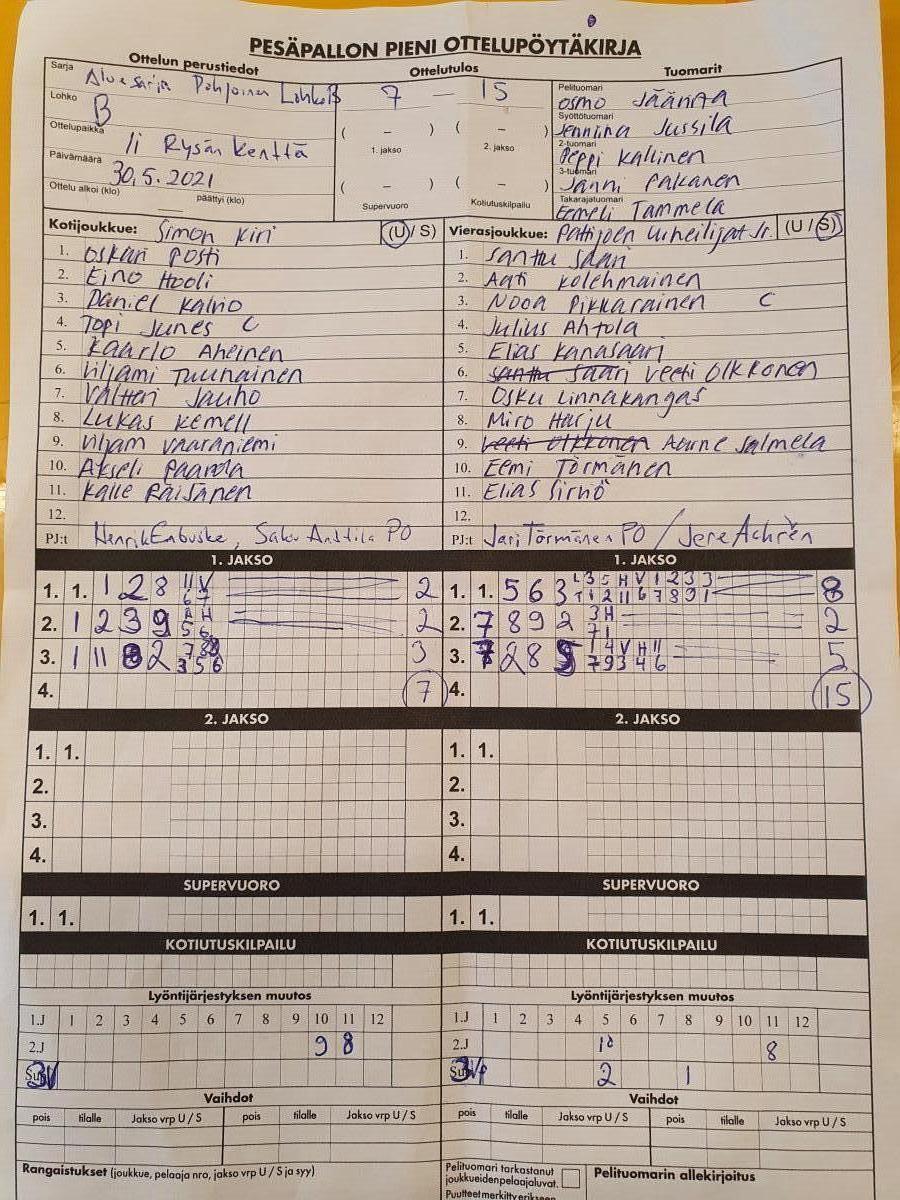 PESÄPALLON PIENI OTTELUPÖYTÄKIRJA
Ottelun perustiedot Ottelutulos Tuomarit
Sarja Aluesarja Pohjoinen LohkoB
Lohko B
Ottelupaikka Ii Rysän kenttä
Päivämäärä 30.5.2021
Ottelu alkoi (klo) päättyi (klo)
7 — 15
( – ) ( – )
1. jakso 2. jakso
( – ) ( – )
Supervuoro Kotiutuskilpailu
Pelituomari osmo Jäänaa
Syöttötuomari Jenniina Jussila
2-tuomari Peppi Kallinen
3-tuomari Janni Pakanen
Takarajatuomari Eemeli Tammela
Kotijoukkue: Simon Kiri (U / S)
1. Oskari Posti
2. Eino Hooli
3. Daniel Kalvio
4. Topi Junes C
5. Kaarlo Aheinen
6. Viljami Tuunainen
7. Valtteri Jauho
8. Lukas Kemell
9. Viljam Vaaraniemi
10. Akseli Paarda
11. Kalle Räisänen
12.
PJ:t Henrik Enbuske, Saku Anttila PO
Vierasjoukkue: Pattijoen Urheilijat Jr. (U / S)
1. Santtu Saari
2. Aati Kolehmainen
3. Nooa Pikkarainen C
4. Julius Ahtola
5. Elias Kanasaari
6. Santtu Saari Veeti Olkkonen
7. Osku Linnakangas
8. Miro Harju
9. Veeti Olkkonen Aarne Salmela
10. Eemi Törmänen
11. Elias Sirniö
12.
PJ:t Jari Törmänen PO / Jere Achrén
1. JAKSO 1. JAKSO
1. 1. 1 2 8 2
2. 1 2 3 9 2
3. 1 11 8 2 3
4. 7
1. 1. 5 6 3 8
2. 7 8 9 2 2
3. 7 2 8 5 5
4. 15
2. JAKSO 2. JAKSO
1. 1. 1. 1.
2. 2.
3. 3.
4. 4.
SUPERVUORO SUPERVUORO
1. 1. 1. 1.
KOTIUTUSKILPAILU KOTIUTUSKILPAILU
Lyöntijärjestyksen muutos Lyöntijärjestyksen muutos
1.J 1 2 3 4 5 6 7 8 9 10 11 12 1.J 1 2 3 4 5 6 7 8 9 10 11 12
2.J 9 8 2.J 10 8
3V 3Vp 2 1
Vaihdot Vaihdot
pois tilalle Jakso vrp U / S pois tilalle Jakso vrp U / S pois tilalle Jakso vrp U / S pois tilalle Jakso vrp U / S
Rangaistukset (joukkue, pelaaja nro, jakso vrp U / S ja syy)
Pelituomari tarkastanut
joukkueiden pelaajaluvat.
Pelituomarin allekirjoitus
Puutteet merkitty erikseen